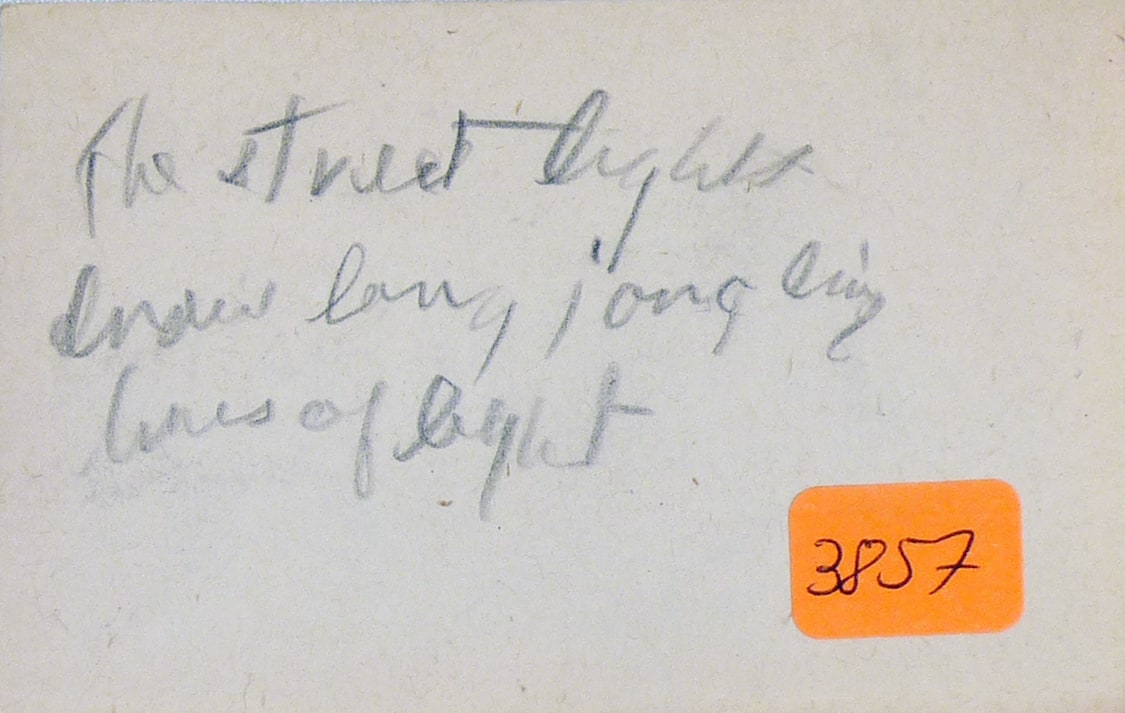 The street lights
draw long, jong ling
lines of light
3857